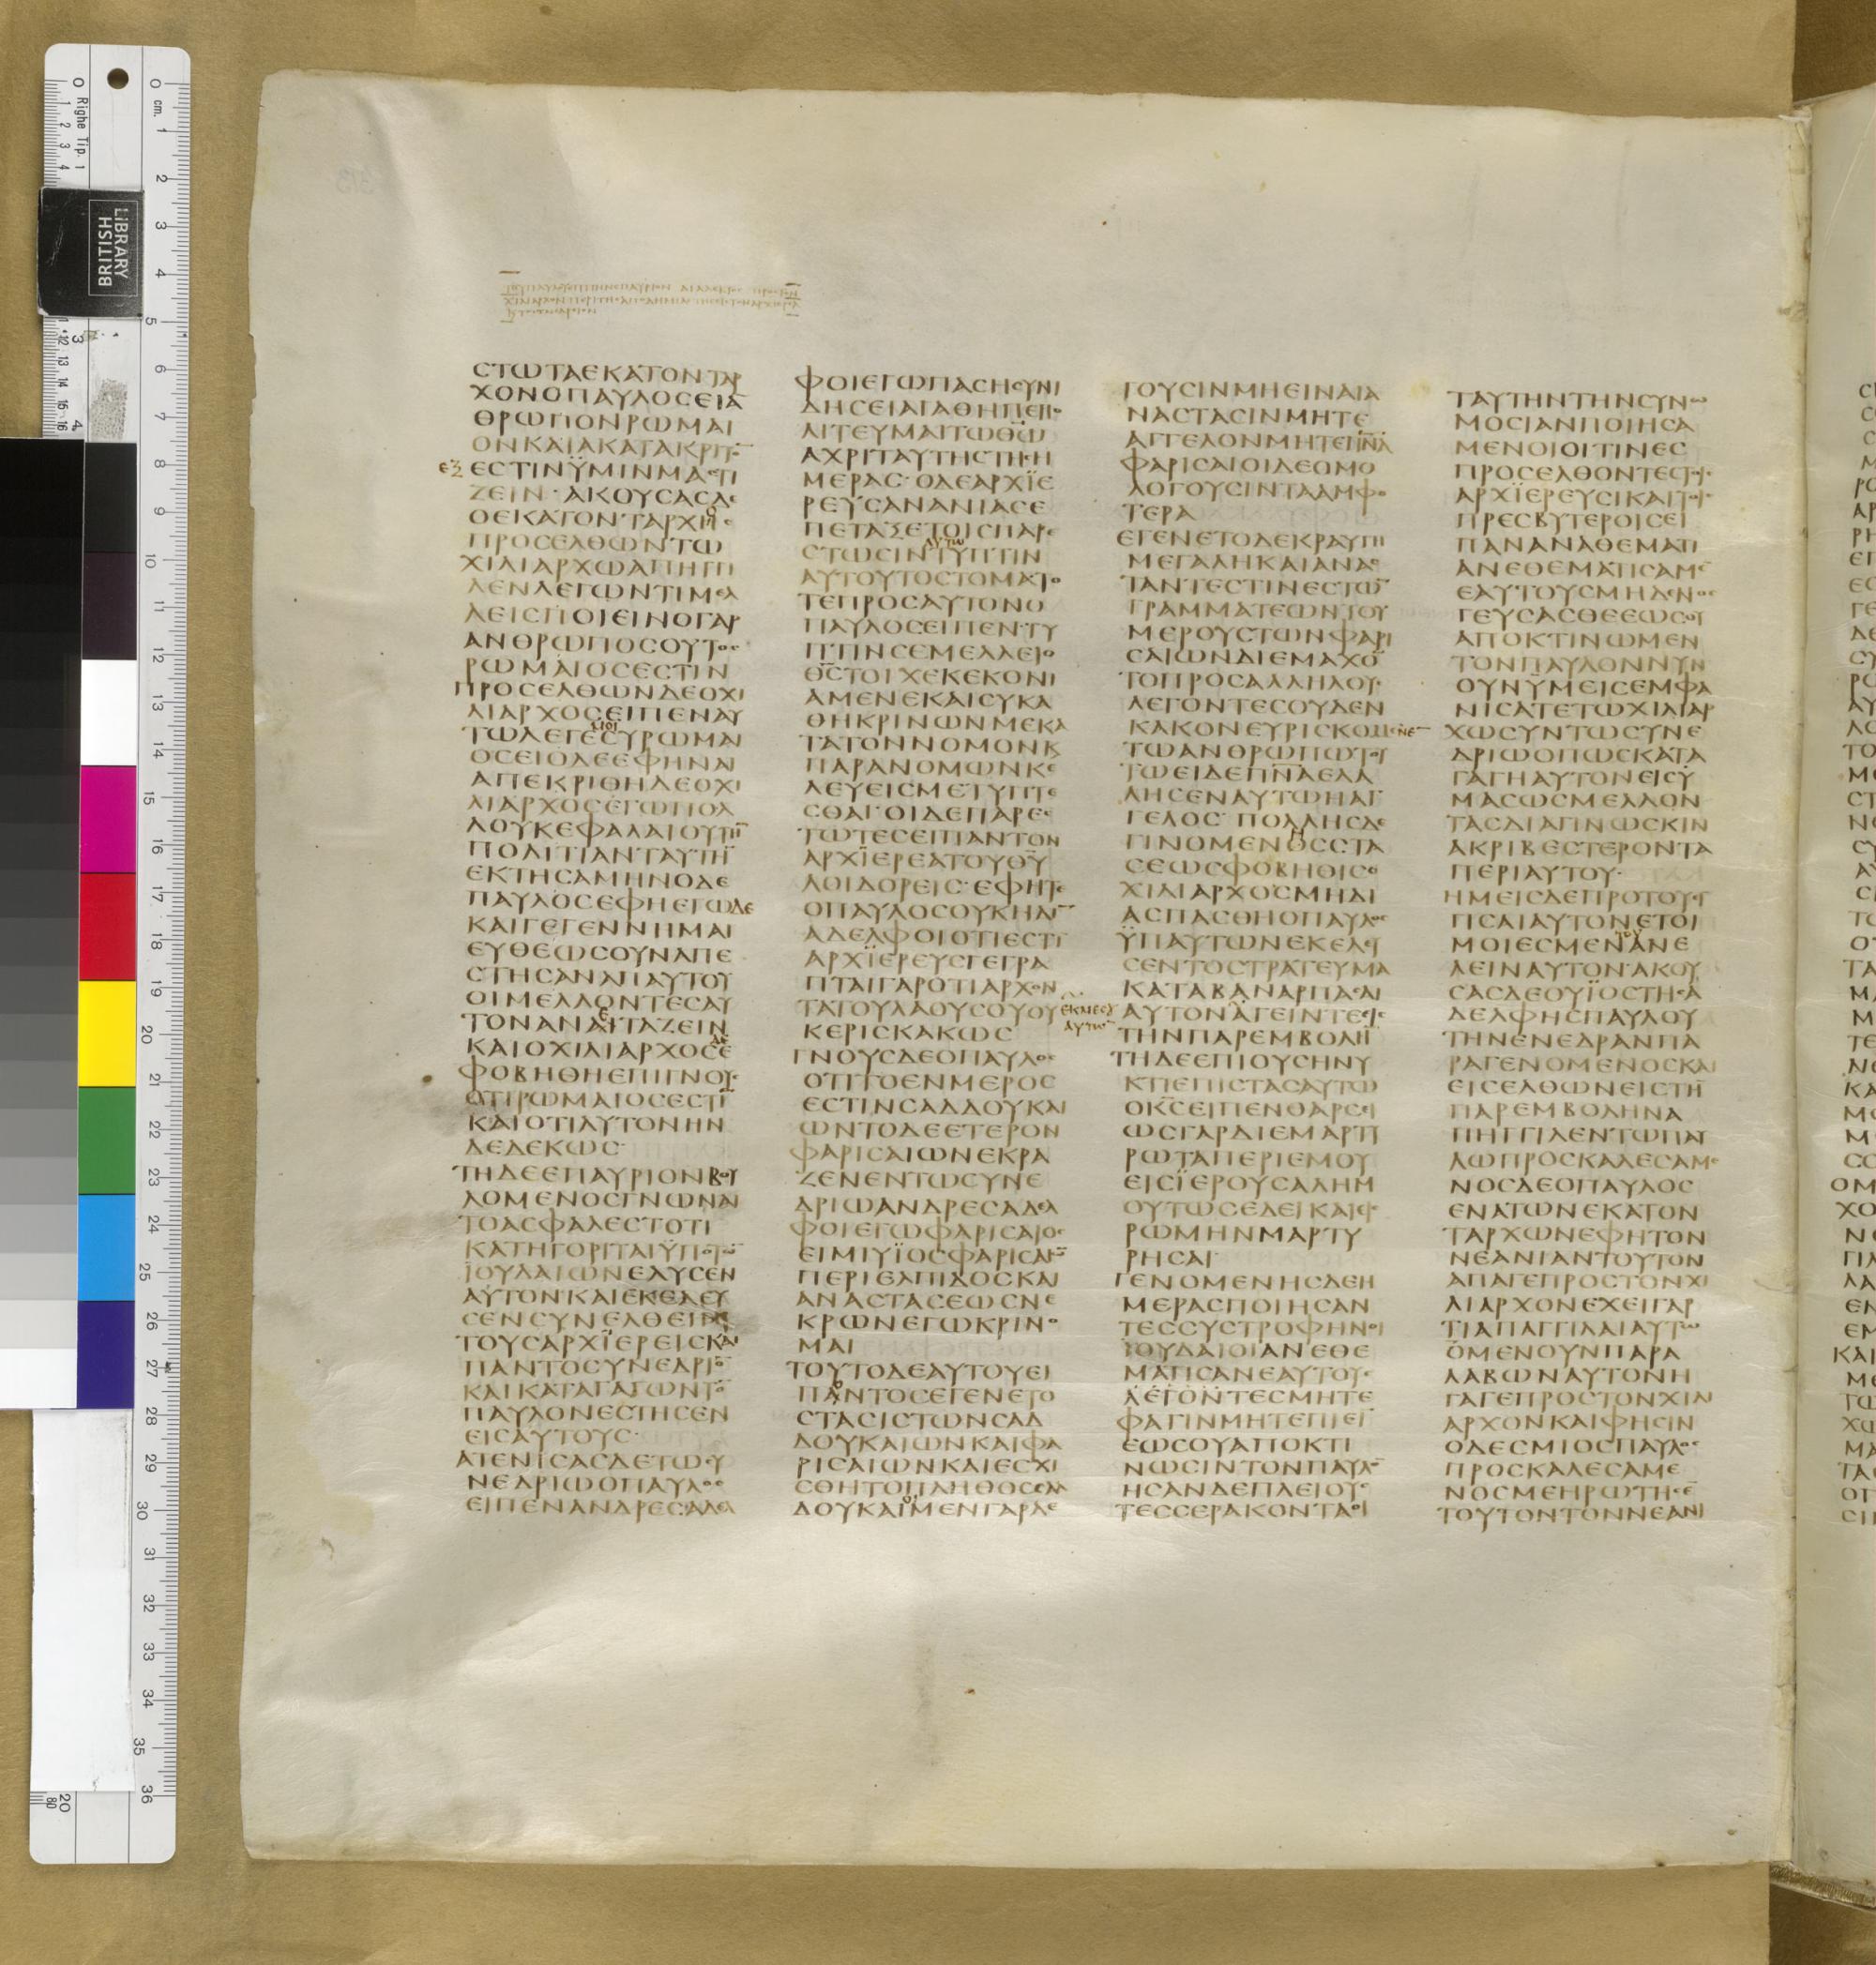 ϹΤΩΤΑΕΚΑΤΟΝΤΑΡ
ΧΟΝΟΠΑΥΛΟϹΕΙΑ
ΘΡΩΠΟΝΡΩΜΑΙ
ΟΝΚΑΙΑΚΑΤΑΚΡΙΤΟ̅
ΕΞΕϹΤΙΝΫΜΙΝΜΑϹΤΙ
ΖΕΙΝ·ΑΚΟΥϹΑϹΔΕ
ΟΕΚΑΤΟΝΤΑΡΧΗϹ
ΠΡΟϹΕΛΘΩΝΤΩ
ΧΙΛΙΑΡΧΩΑΠΗΓΓΙ
ΛΕΝΛΕΓΩΝΤΙΜΕΛ
ΛΕΙϹΠΟΙΕΙΝΟΓΑΡ
ΑΝΘΡΩΠΟϹΟΥΤΟϹ
ΡΩΜΑΙΟϹΕϹΤΙΝ
ΠΡΟϹΕΛΘΩΝΔΕΟΧΙ
ΛΙΑΡΧΟϹΕΙΠΕΝΑΥ
ΤΩΛΕΓΕϹΥΡΩΜΑΙ
ΟϹΕΙΟΔΕΕΦΗΝΑΙ
ΑΠΕΚΡΙΘΗΔΕΟΧΙ
ΛΙΑΡΧΟϹΕΓΩΠΟΛ
ΛΟΥΚΕΦΑΛΑΙΟΥΤΗ̅
ΠΟΛΙΤΙΑΝΤΑΥΤΗ̅
ΕΚΤΗϹΑΜΗΝΟΔΕ
ΠΑΥΛΟϹΕΦΗΕΓΩΔΕ
ΚΑΙΓΕΓΕΝΝΗΜΑΙ
ΕΥΘΕΩϹΟΥΝΑΠΕ
ϹΤΗϹΑΝΑΠΑΥΤΟΥ
ΟΙΜΕΛΛΟΝΤΕϹΑΥ
ΤΟΝΑΝΑΙΤΑΖΕΙΝ
ΚΑΙΟΧΙΛΙΑΡΧΟϹΕ
ΦΟΒΗΘΗΕΠΙΓΝΟΥϹ
ΟΤΙΡΩΜΑΙΟϹΕϹΤΙ̅
ΚΑΙΟΤΙΑΥΤΟΝΗΝ
ΔΕΔΕΚΩϹ·
ΤΗΔΕΕΠΑΥΡΙΟΝΒΟΥ
ΛΟΜΕΝΟϹΓΝΩΝΑΙ
ΤΟΑϹΦΑΛΕϹΤΟΤΙ
ΚΑΤΗΓΟΡΙΤΑΙΫΠΟΤΩ̅
ΪΟΥΔΑΙΩΝΕΛΥϹΕΝ
ΑΥΤΟΝΚΑΙΕΚΕΛΕΥ
ϹΕΝϹΥΝΕΛΘΕΙΝ
ΤΟΥϹΑΡΧΪΕΡΕΙϹΚΑΙ
ΠΑΝΤΟϹΥΝΕΔΡΙΟ̅
ΚΑΙΚΑΤΑΓΑΓΩΝΤΟ̅
ΠΑΥΛΟΝΕϹΤΗϹΕΝ
ΕΙϹΑΥΤΟΥϹ·
ΑΤΕΝΙϹΑϹΔΕΤΩϹΥ
ΝΕΔΡΙΩΟΠΑΥΛΟϹ
ΕΙΠΕΝΑΝΔΡΕϹΑΔΕΛ
ΦΟΙΕΓΩΠΑϹΗϹΥΝΙ
ΔΗϹΕΙΑΓΑΘΗΠΕΠΟ
ΛΙΤΕΥΜΑΙΤΩΘ̅Ω̅
ΑΧΡΙΤΑΥΤΗϹΤΗϹΗ
ΜΕΡΑϹ·ΟΔΕΑΡΧΪΕ
ΡΕΥϹΑΝΑΝΙΑϹΕ
ΠΕΤΑΞΕΤΟΙϹΠΑΡΕ
ϹΤΩϹΙΝΤΥΠΤΙΝ
ΑΥΤΟΥΤΟϹΤΟΜΑΤΟ
ΤΕΠΡΟϹΑΥΤΟΝΟ
ΠΑΥΛΟϹΕΙΠΕΝ·ΤΥ
ΠΤΙΝϹΕΜΕΛΛΕΙΟ
Θ̅Ϲ̅ΤΟΙΧΕΚΕΚΟΝΙ
ΑΜΕΝΕΚΑΙϹΥΚΑ
ΘΗΚΡΙΝΩΝΜΕΚΑ
ΤΑΤΟΝΝΟΜΟΝΚ
ΠΑΡΑΝΟΜΩΝΚΕ
ΛΕΥΕΙϹΜΕΤΥΠΤΕ
ϹΘΑΙ·ΟΙΔΕΠΑΡΕϹ
ΤΩΤΕϹΕΙΠΑΝΤΟΝ
ΑΡΧΪΕΡΕΑΤΟΥΘ̅Υ̅
ΛΟΙΔΟΡΕΙϹ·ΕΦΗΤΕ
ΟΠΑΥΛΟϹΟΥΚΗΔΙ̅
ΑΔΕΛΦΟΙΟΤΙΕϹΤΙ
ΑΡΧΪΕΡΕΥϹΓΕΓΡΑ
ΠΤΑΙΓΑΡΟΤΙΑΡΧΟΝ
ΤΑΤΟΥΛΑΟΥϹΟΥΟΥ
ΚΕΡΙϹΚΑΚΩϹ
ΓΝΟΥϹΔΕΟΠΑΥΛΟϹ
ΟΤΙΤΟΕΝΜΕΡΟϹ
ΕϹΤΙΝϹΑΔΔΟΥΚΑΙ
ΩΝΤΟΔΕΕΤΕΡΟΝ
ΦΑΡΙϹΑΙΩΝΕΚΡΑ
ΖΕΝΕΝΤΩϹΥΝΕ
ΔΡΙΩΑΝΔΡΕϹΑΔΕΛ
ΦΟΙΕΓΩΦΑΡΙϹΑΙΟϹ
ΕΙΜΙΥΪΟϹΦΑΡΙϹΑΙΩ̅
ΠΕΡΙΕΛΠΙΔΟϹΚΑΙ
ΑΝΑϹΤΑϹΕΩϹΝΕ
ΚΡΩΝΕΓΩΚΡΙΝΟ
ΜΑΙ
ΤΟΥΤΟΔΕΑΥΤΟΥΕΙ
ΠΑΝΤΟϹΕΓΕΝΕΤΟ
ϹΤΑϹΙϹΤΩΝϹΑΔ
ΔΟΥΚΑΙΩΝΚΑΙΦΑ
ΡΙϹΑΙΩΝΚΑΙΕϹΧΙ
ϹΘΗΤΟΠΛΗΘΟϹϹΑΔ
ΔΟΥΚΑΙΜΕΝΓΑΡΛΕ
ΓΟΥϹΙΝΜΗΕΙΝΑΙΑ
ΝΑϹΤΑϹΙΝΜΗΤΕ
ΑΓΓΕΛΟΝΜΗΤΕΠ̅Ν̅Α̅
ΦΑΡΙϹΑΙΟΙΔΕΟΜΟ
ΛΟΓΟΥϹΙΝΤΑΑΜΦΟ
ΤΕΡΑ
ΕΓΕΝΕΤΟΔΕΚΡΑΥΓΗ
ΜΕΓΑΛΗΚΑΙΑΝΑϹ
ΤΑΝΤΕϹΤΙΝΕϹΤΩ̅
ΓΡΑΜΜΑΤΕΩΝΤΟΥ
ΜΕΡΟΥϹΤΩΝΦΑΡΙ
ϹΑΙΩΝΔΙΕΜΑΧΟ̅
ΤΟΠΡΟϹΑΛΛΗΛΟΥϹ
ΛΕΓΟΝΤΕϹΟΥΔΕΝ
ΚΑΚΟΝΕΥΡΙϹΚΟΜΕΝΕ̅
ΤΩΑΝΘΡΩΠΩΤΟΥ
ΤΩΕΙΔΕΠ̅Ν̅Α̅ΕΛΑ
ΛΗϹΕΝΑΥΤΩΗΑΓ
ΓΕΛΟϹ·ΠΟΛΛΗϹΔΕ
ΓΙΝΟΜΕΝΟϹϹΤΑ
ϹΕΩϹΦΟΒΗΘΙϹΟ
ΧΙΛΙΑΡΧΟϹΜΗΔΙ
ΑϹΠΑϹΘΗΟΠΑΥΛΟϹ
ΫΠΑΥΤΩΝΕΚΕΛΕΥ
ϹΕΝΤΟϹΤΡΑΤΕΥΜΑ
ΚΑΤΑΒΑΝΑΡΠΑϹΑΙ
ΕΚΜΕϹΟΥ
ΑΥΤΩ̅
ΑΥΤΟΝΑΓΕΙΝΤΕΕΙϹ
ΤΗΝΠΑΡΕΜΒΟΛΗ̅
ΤΗΔΕΕΠΙΟΥϹΗΝΥ
ΚΤΙΕΠΙϹΤΑϹΑΥΤΩ
ΟΚ̅Ϲ̅ΕΙΠΕΝΘΑΡϹΕΙ
ΩϹΓΑΡΔΙΕΜΑΡΤΥ
ΡΩΤΑΠΕΡΙΕΜΟΥ
ΕΙϹΪΕΡΟΥϹΑΛΗΜ
ΟΥΤΩϹΕΔΕΙΚΑΙΕΙϹ
ΡΩΜΗΝΜΑΡΤΥ
ΡΗϹΑΙ
ΓΕΝΟΜΕΝΗϹΔΕΗ
ΜΕΡΑϹΠΟΙΗϹΑΝ
ΤΕϹϹΥϹΤΡΟΦΗΝΟΙ
ΪΟΥΔΑΙΟΙΑΝΕΘΕ
ΜΑΤΙϹΑΝΕΑΥΤΟΥϹ
ΛΕΓΟΝΤΕϹΜΗΤΕ
ΦΑΓΙΝΜΗΤΕΠΙΕΙ̅
ΕΩϹΟΥΑΠΟΚΤΙ
ΝΩϹΙΝΤΟΝΠΑΥΛΟ̅
ΗϹΑΝΔΕΠΛΕΙΟΥϹ
ΤΕϹϹΕΡΑΚΟΝΤΑΟΙ
ΤΑΥΤΗΝΤΗΝϹΥΝΩ
ΜΟϹΙΑΝΠΟΙΗϹΑ
ΜΕΝΟΙΟΙΤΙΝΕϹ
ΠΡΟϹΕΛΘΟΝΤΕϹΤΟΙϹ
ΑΡΧΪΕΡΕΥϹΙΚΑΙΤΟΙϹ
ΠΡΕϹΒΥΤΕΡΟΙϹΕΙ
ΠΑΝΑΝΑΘΕΜΑΤΙ
ΑΝΕΘΕΜΑΤΙϹΑΜΕ
ΕΑΥΤΟΥϹΜΗΔΕΝΟϹ
ΓΕΥϹΑϹΘΕΕΩϹΟΥ
ΑΠΟΚΤΙΝΩΜΕΝ
ΤΟΝΠΑΥΛΟΝΝΥΝ
ΟΥΝΫΜΕΙϹΕΜΦΑ
ΝΙϹΑΤΕΤΩΧΙΛΙΑΡ
ΧΩϹΥΝΤΩϹΥΝΕ
ΔΡΙΩΟΠΩϹΚΑΤΑ
ΓΑΓΗΑΥΤΟΝΕΙϹΫ
ΜΑϹΩϹΜΕΛΛΟΝ
ΤΑϹΔΙΑΓΙΝΩϹΚΙΝ
ΑΚΡΙΒΕϹΤΕΡΟΝΤΑ
ΠΕΡΙΑΥΤΟΥ·
ΗΜΕΙϹΔΕΠΡΟΤΟΥΕΓ
ΓΙϹΑΙΑΥΤΟΝΕΤΟΙ
ΜΟΙΕϹΜΕΝΑΝΕ
ΛΕΙΝΑΥΤΟΝ·ΑΚΟΥ
ϹΑϹΔΕΟΥΪΟϹΤΗϹΑ
ΔΕΛΦΗϹΠΑΥΛΟΥ
ΤΗΝΕΝΕΔΡΑΝΠΑ
ΡΑΓΕΝΟΜΕΝΟϹΚΑΙ
ΕΙϹΕΛΘΩΝΕΙϹΤΗ̅
ΠΑΡΕΜΒΟΛΗΝΑ
ΠΗΓΓΙΛΕΝΤΩΠΑΥ
ΛΩΠΡΟϹΚΑΛΕϹΑΜΕ
ΝΟϹΔΕΟΠΑΥΛΟϹ
ΕΝΑΤΩΝΕΚΑΤΟΝ
ΤΑΡΧΩΝΕΦΗΤΟΝ
ΝΕΑΝΙΑΝΤΟΥΤΟΝ
ΑΠΑΓΕΠΡΟϹΤΟΝΧΙ
ΛΙΑΡΧΟΝΕΧΕΙΓΑΡ
ΤΙΑΠΑΓΓΙΛΑΙΑΥΤΩ
ΟΜΕΝΟΥΝΠΑΡΑ
ΛΑΒΩΝΑΥΤΟΝΗ
ΓΑΓΕΠΡΟϹΤΟΝΧΙΛΙ
ΑΡΧΟΝΚΑΙΦΗϹΙΝ
ΟΔΕϹΜΙΟϹΠΑΥΛΟϹ
ΠΡΟϹΚΑΛΕϹΑΜΕ
ΝΟϹΜΕΗΡΩΤΗϹΕ̅
ΤΟΥΤΟΝΤΟΝΝΕΑΝΙ